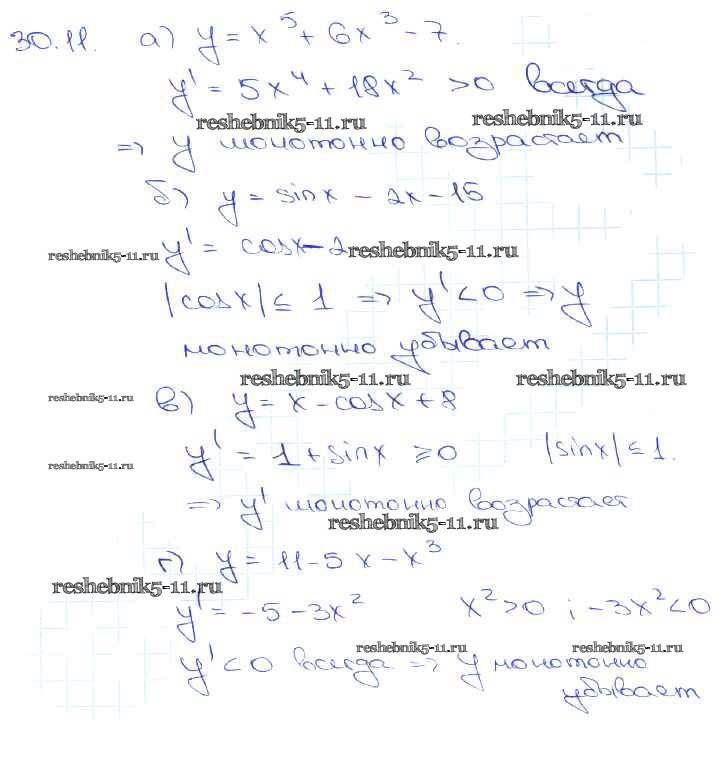 30.11. а) y = x⁵ + 6x³ - 7.
y' = 5x⁴ + 18x² >0 всегда
reshebnik5-11.ru reshebnik5-11.ru
=> y монотонно возрастает
б) y = sinx - 2x - 15
reshebnik5-11.ru y' = cosx - 2 reshebnik5-11.ru
|cosx| ≤ 1 => y' < 0 => y
монотонно убывает
reshebnik5-11.ru reshebnik5-11.ru
reshebnik5-11.ru в) y = x - cosx + 8
y' = 1 + sinx ≥ 0 |sinx| ≤ 1.
reshebnik5-11.ru
=> y' монотонно возрастает
reshebnik5-11.ru
г) y = 11 - 5x - x³
reshebnik5-11.ru
y' = -5 - 3x² x² > 0 ; -3x² < 0
reshebnik5-11.ru reshebnik5-11.ru
y' < 0 всегда => y монотонно
убывает